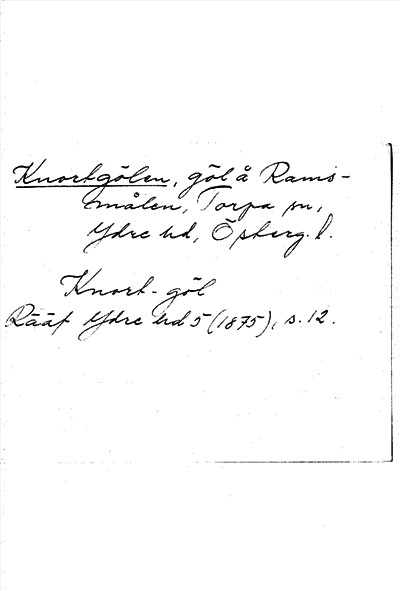 Knortgölen, göl å Rams-
målen, Torpa sn,
Ydre hd, Östberg. l.
Knort-göl
Rääf Ydre hd 5 (1875), s. 12.